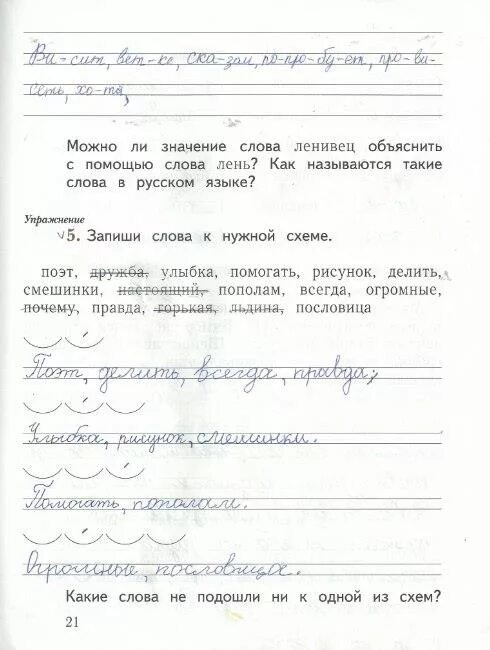 Ви-сит, вет-ке, ска-зал, по-про-бу-ет, про-ви-
сеть, хо-тя,
Можно ли значение слова ленивец объяснить
с помощью слова лень? Как называются такие
слова в русском языке?
Упражнение
√5. Запиши слова к нужной схеме.
поэт, дружба, улыбка, помогать, рисунок, делить,
смешинки, настоящий, пополам, всегда, огромные,
почему, правда, горькая, льдина, пословица
Поэт, делить, всегда, правда;
Улыбка, рисунок, смешинки.
Помогать, пополам.
Огромные, пословица.
Какие слова не подошли ни к одной из схем?
21